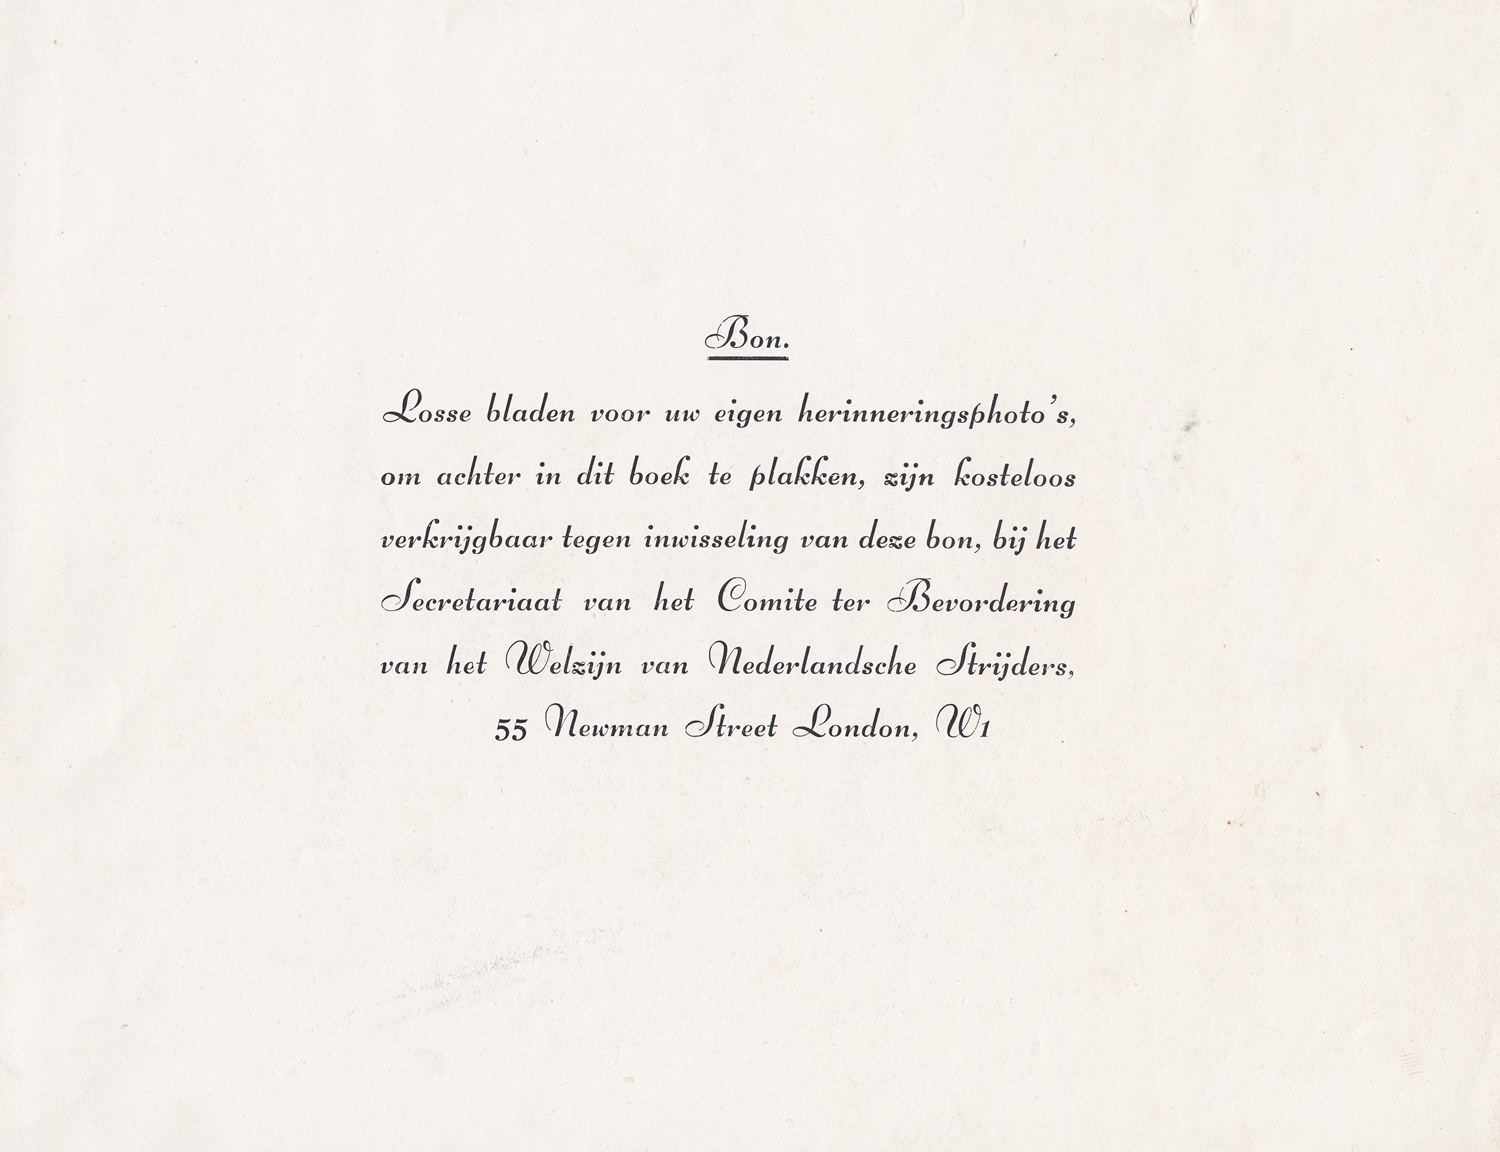 Bon.
Losse bladen voor uw eigen herinneringsphoto's,
om achter in dit boek te plakken, zijn kosteloos
verkrijgbaar tegen inwisseling van deze bon, bij het
Secretariaat van het Comite ter Bevordering
van het Welzijn van Nederlandsche Strijders,
55 Newman Street London, W1